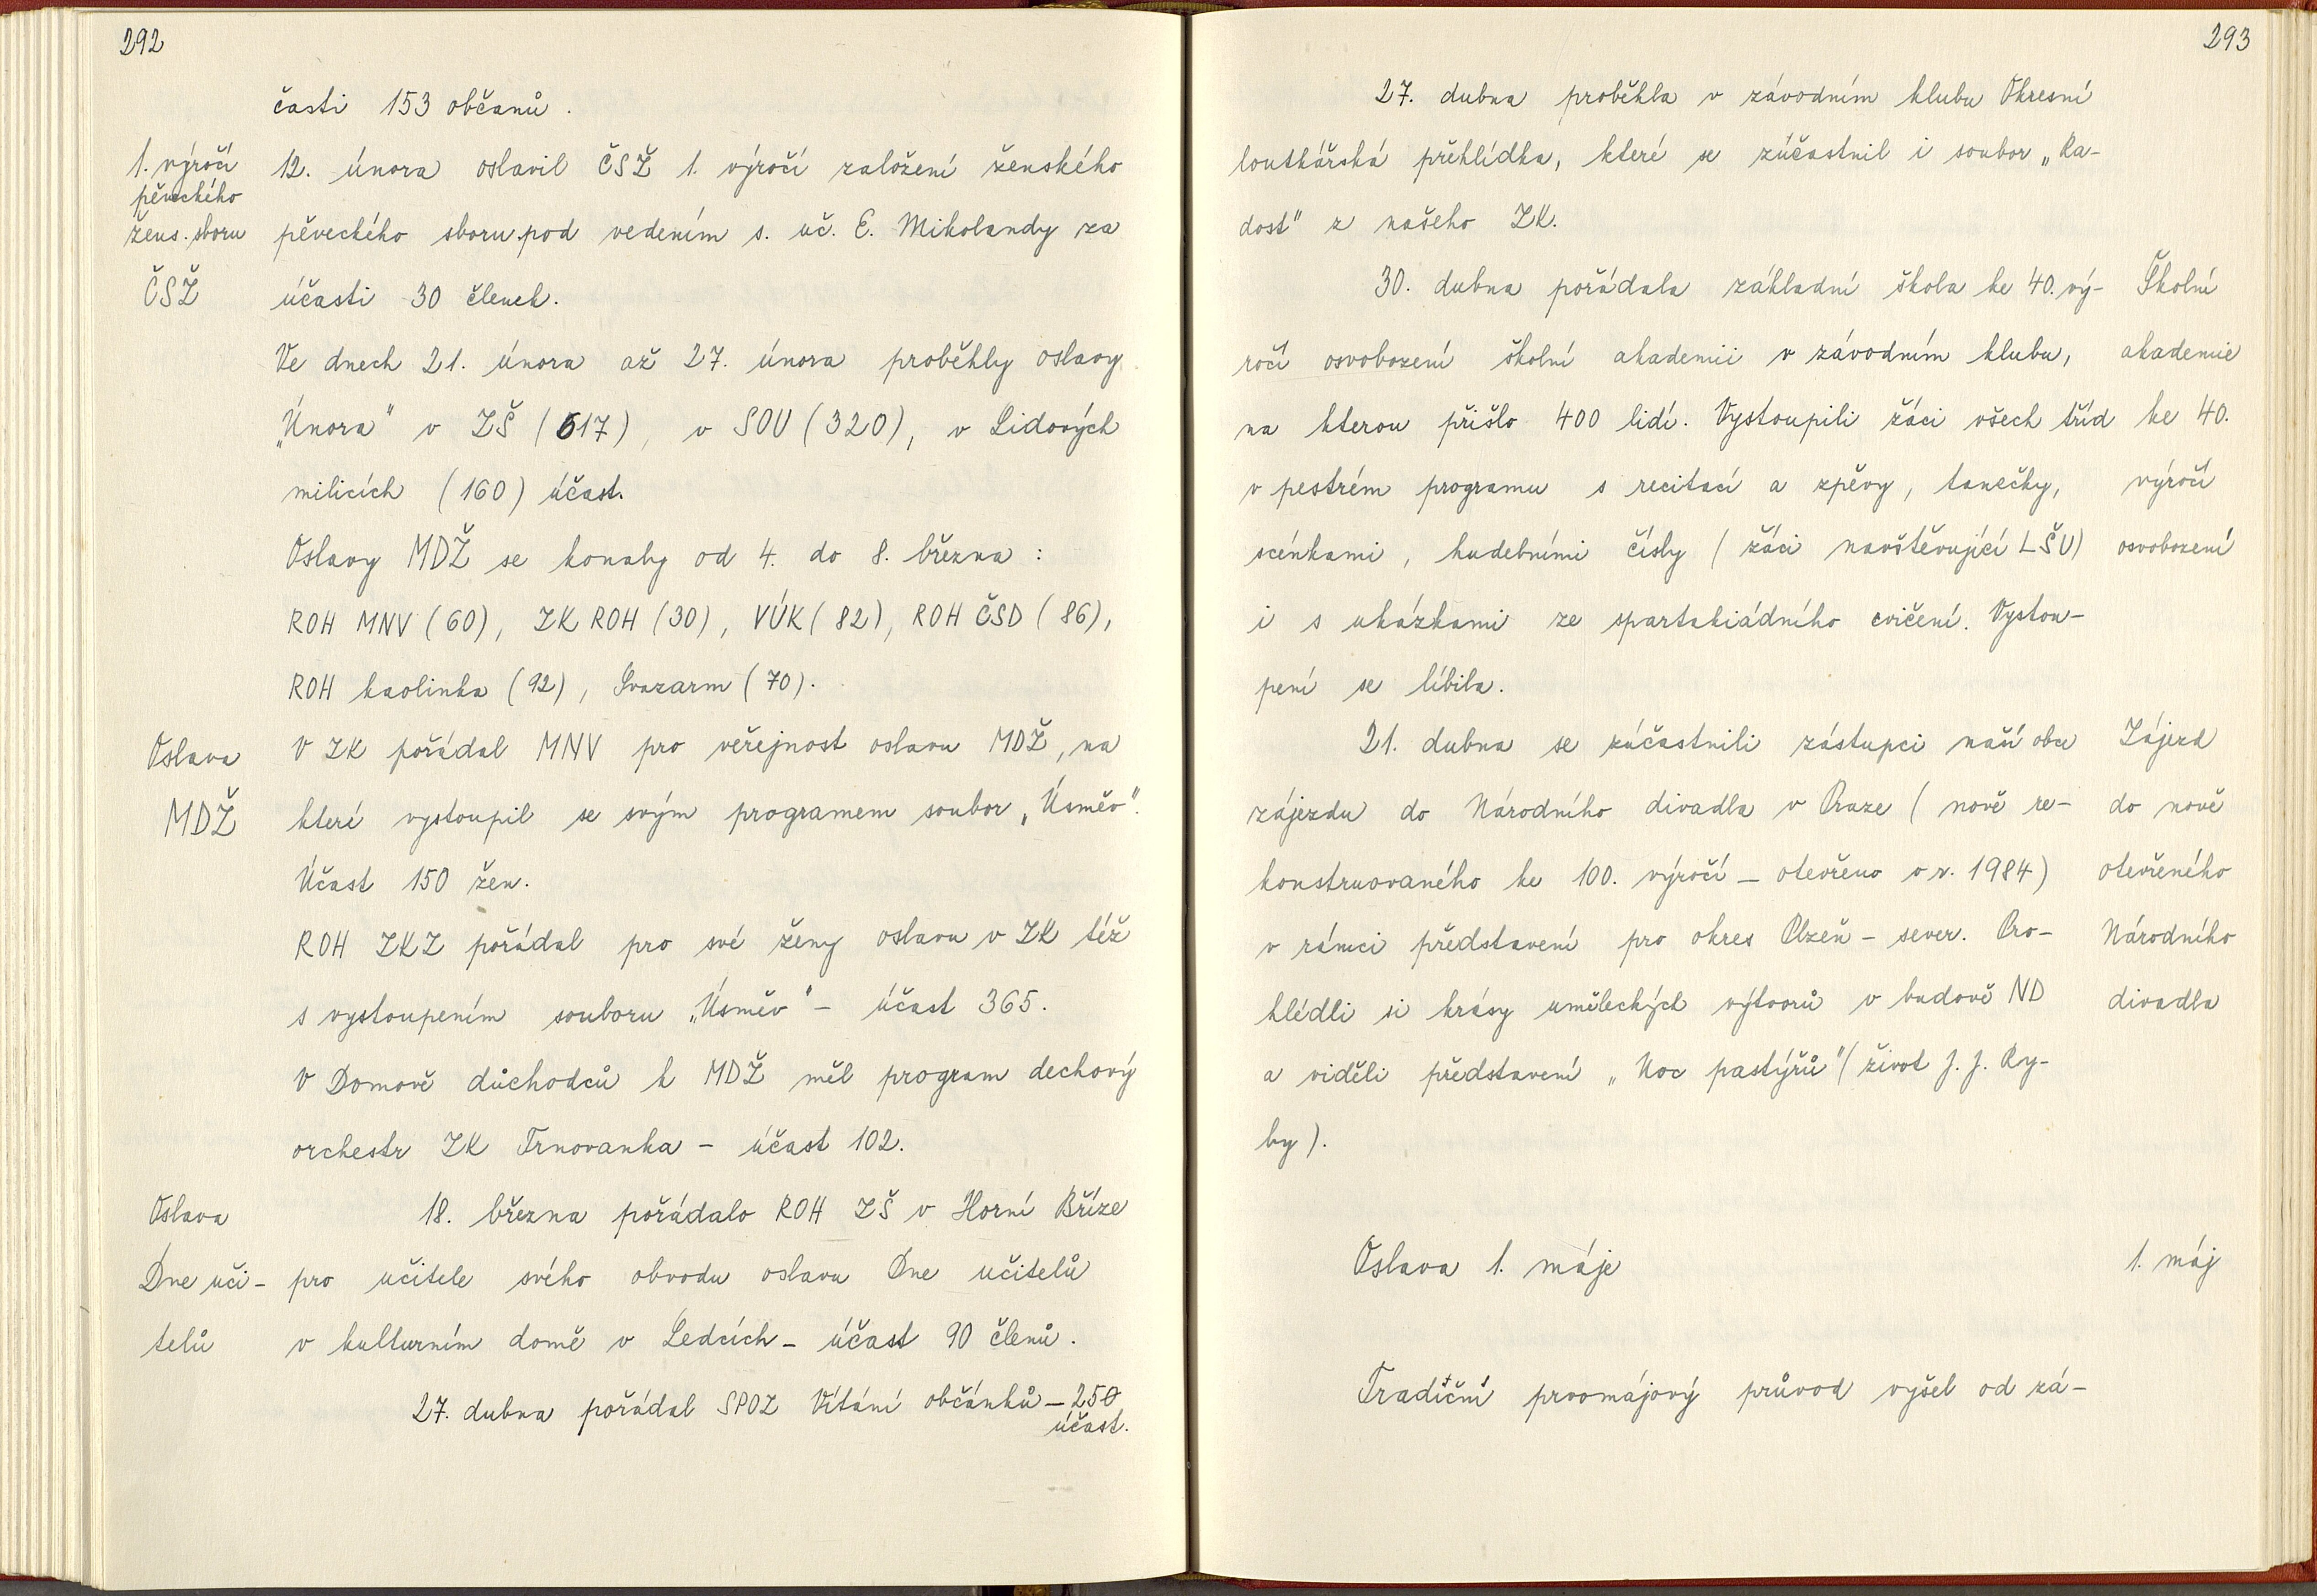 292
části 153 občanů.
1. výročí
pěveckého
žens. sboru
ČSŽ
12. února oslavil ČSŽ 1. výročí založení ženského
pěveckého sboru pod vedením s. uč. E. Mikolandy za
účasti 30 členek.
Ve dnech 21. února až 27. února proběhly oslavy
„Února" v ZŠ (617), v SOU (320), v Lidových
milicích (160) účast.
Oslavy MDŽ se konaly od 4. do 8. března :
ROH MNV (60), ZK ROH (30), VÚK (82), ROH ČSD (86),
ROH kaolinka (92), Svazarm (70).
Oslava
MDŽ
V ZK pořádal MNV pro veřejnost oslavu MDŽ, na
které vystoupil se svým programem soubor „Úsměv".
Účast 150 žen.
ROH ZKZ pořádal pro své ženy oslavu v ZK též
s vystoupením souboru „Úsměv" – účast 365.
V Domově důchodců k MDŽ měl program dechový
orchestr ZK Trnovanka – účast 102.
Oslava
Dne uči-
telů
18. března pořádalo ROH ZŠ v Horní Bříze
pro učitele svého obvodu oslavu Dne učitelů
v kulturním domě v Ledcích – účast 90 členů.
27. dubna pořádal SPOZ Vítání občánků – 250
účast.
293
27. dubna proběhla v závodním klubu Okresní
loutkářská přehlídka, které se zúčastnil i soubor „Ra-
dost" z našeho ZK.
30. dubna pořádala základní škola ke 40. vý-
ročí osvobození školní akademii v závodním klubu,
na kterou přišlo 400 lidí. Vystoupili žáci všech tříd
v pestrém programu s recitací a zpěvy, tanečky,
scénkami, hudebními čísly (žáci navštěvující LŠU)
i s ukázkami ze spartakiádního cvičení. Vystou-
pení se líbila.
Školní
akademie
ke 40.
výročí
osvobození
21. dubna se zúčastnili zástupci naší obce
zájezdu do Národního divadla v Praze (nově re-
konstruovaného ke 100. výročí – otevřeno v r. 1984)
v rámci představení pro okres Plzeň – sever. Pro-
hlédli si krásy uměleckých výtvorů v budově ND
a viděli představení „Noc pastýřů" (život J. J. Ry-
by).
Zájezd
do nově
otevřeného
Národního
divadla
Oslava 1. máje
1. máj
Tradiční prvomájový průvod vyšel od zá-